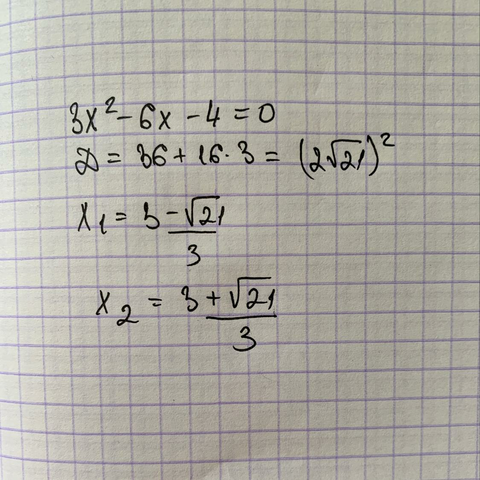 3x² - 6x - 4 = 0
D = 36 + 16·3 = (2√21)²
x₁ = (3 - √21)/3
x₂ = (3 + √21)/3